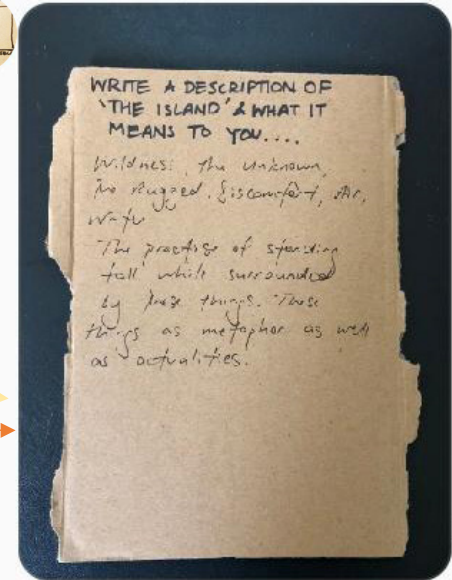 WRITE A DESCRIPTION OF
'THE ISLAND' & WHAT IT
MEANS TO YOU....
Wildness, the unknown,
the rugged. Discomfort, Air,
Water
The practise of standing
tall while surrounded
by these things. These
things as metaphor as well
as actualities.